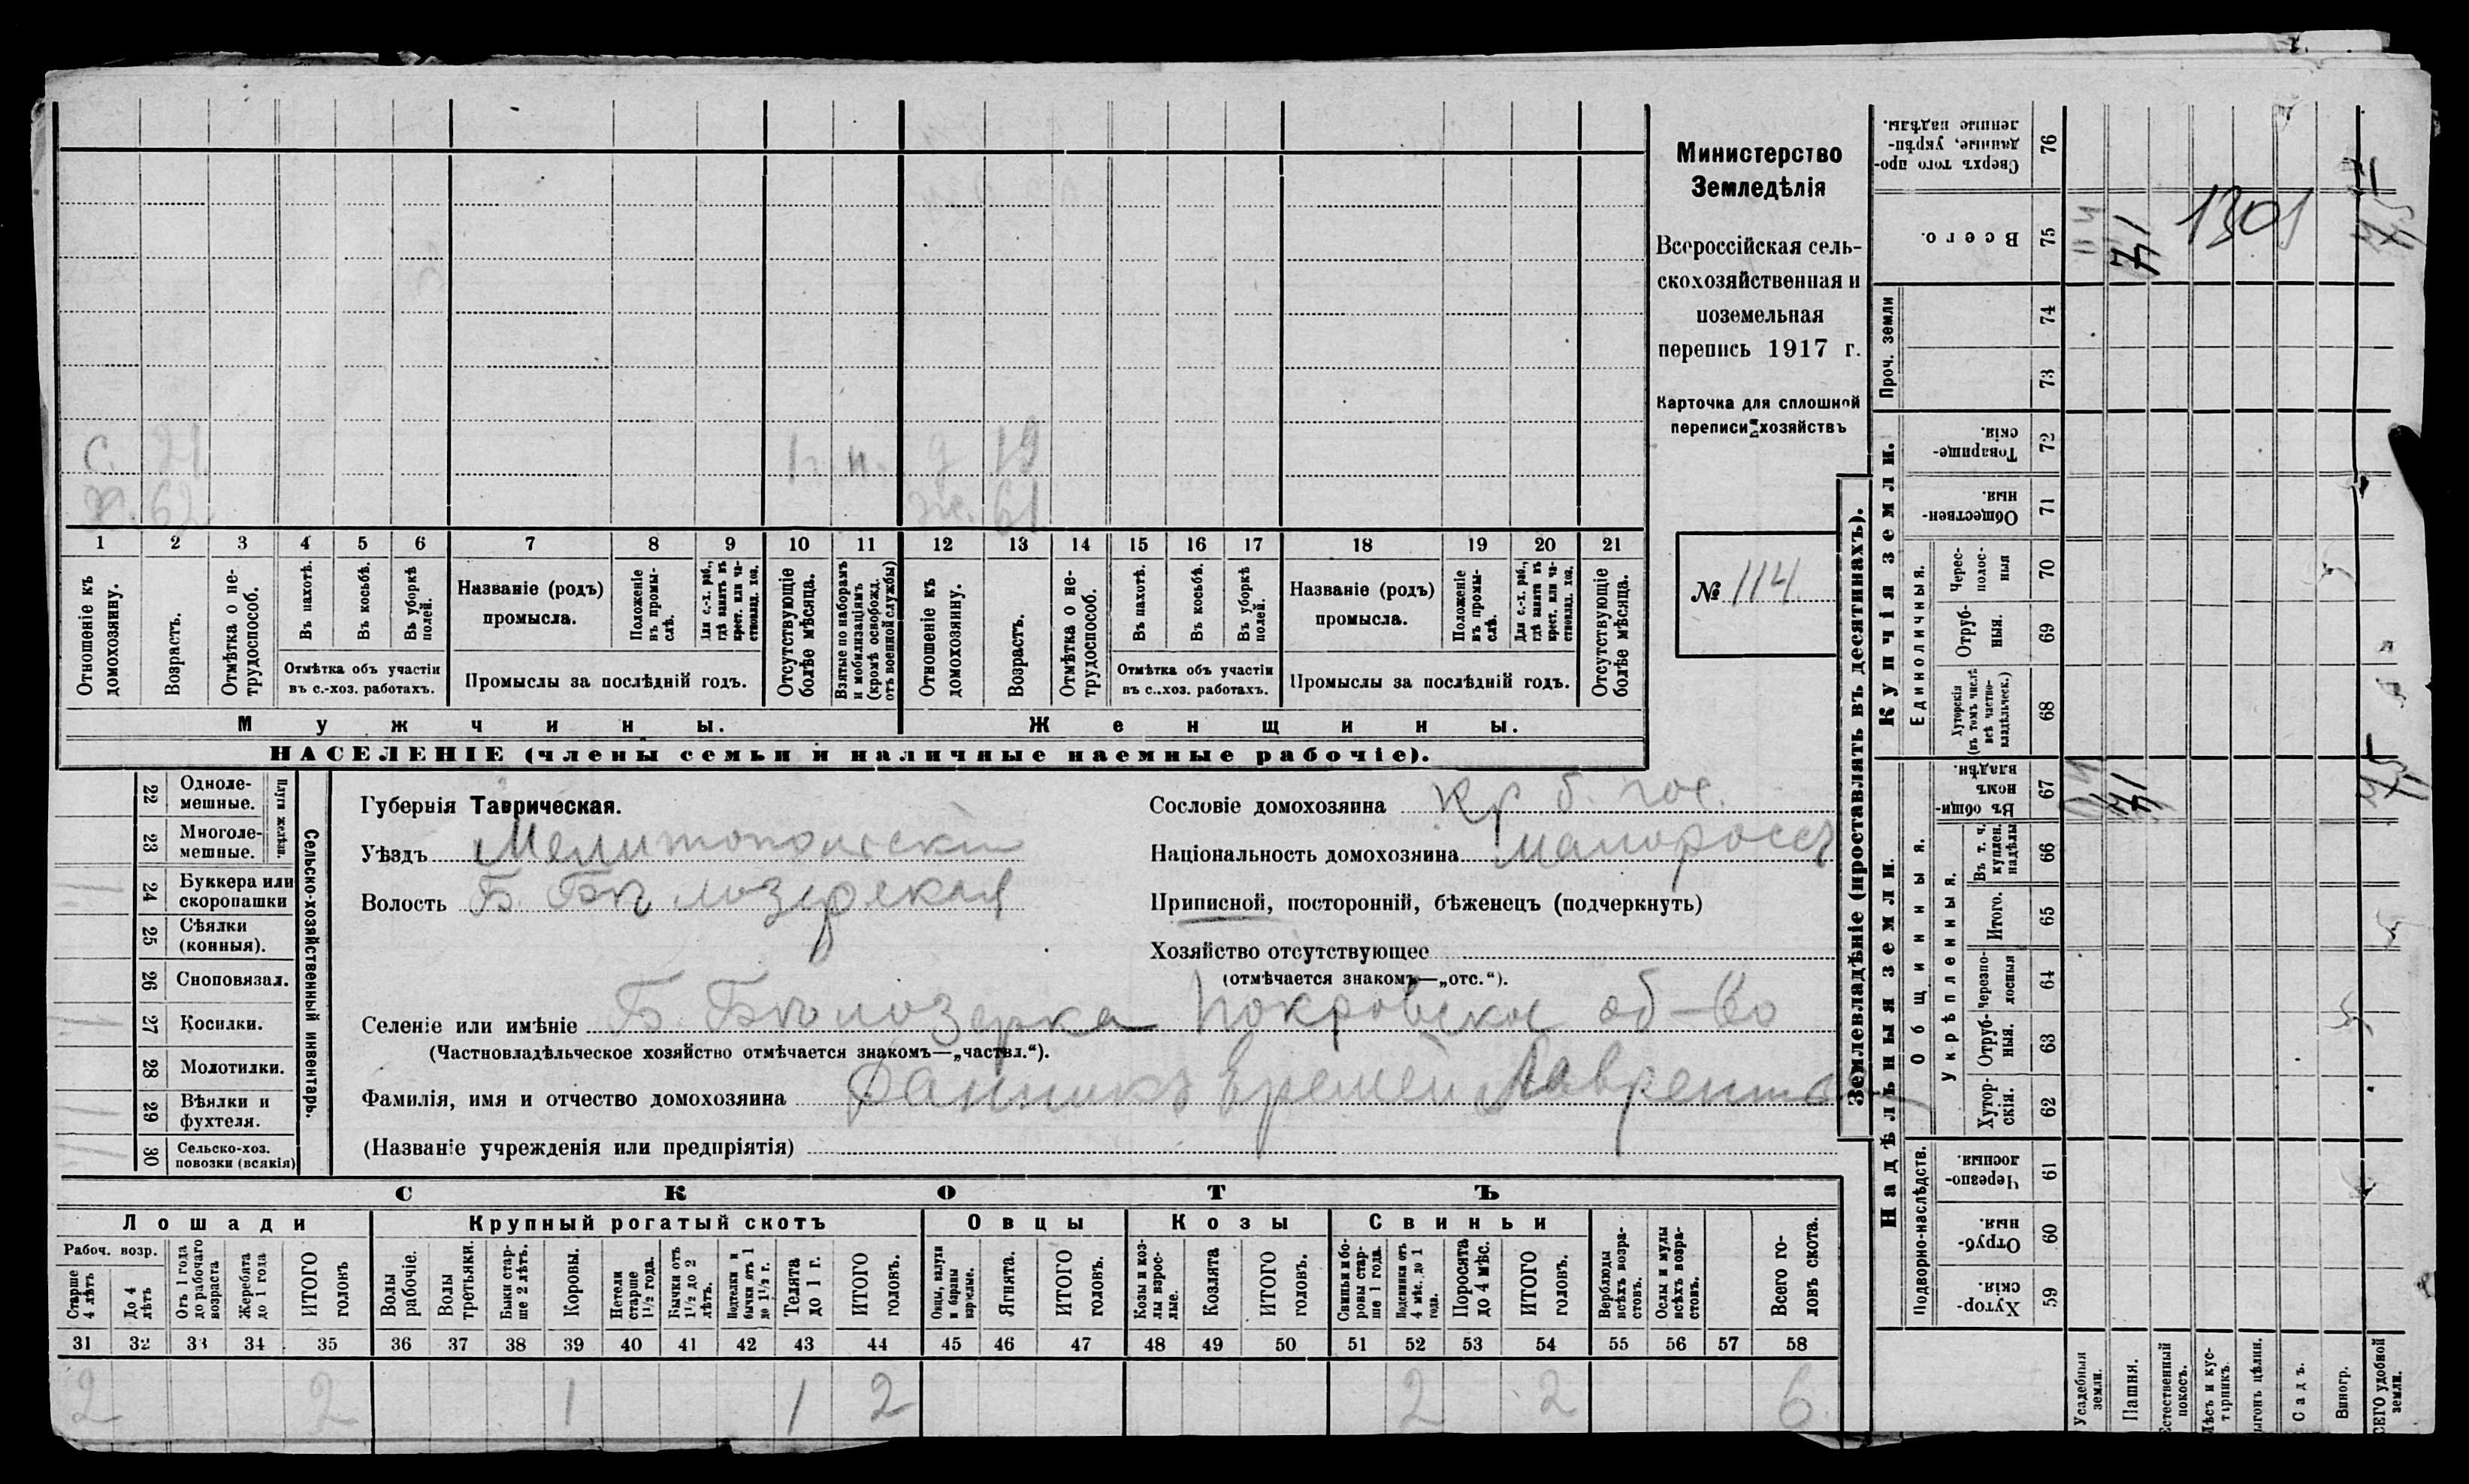 Министерство
Земледѣлія
Всероссійская сель-
скохозяйственная и
поземельная
перепись 1917 г.
Карточка для сплошной
переписи хозяйствъ
№ 114
С. 21 1 н. д 19
х. 62. ж. 61
1 2 3 4 5 6 7 8 9 10 11 12 13 14 15 16 17 18 19 20 21
Отношеніе къ домохозяину.
Возрастъ.
Отмѣтка о не-трудоспособ.
Въ пахотѣ.
Въ косьбѣ.
Въ уборкѣ полей.
Отмѣтка объ участіи
въ с.-хоз. работахъ.
Названіе (родъ)
промысла.
Положеніе въ промы-слѣ.
Для с.-х. раб., гдѣ занятъ въ крест. или ча-стновлад. хоз.
Промыслы за послѣдній годъ.
Отсутствующіе болѣе мѣсяца.
Взятые по наборамъ и мобилизаціямъ (кромѣ освобожд. отъ военной службы)
Отношеніе къ домохозяину.
Возрастъ.
Отмѣтка о не-трудоспособ.
Въ пахотѣ.
Въ косьбѣ.
Въ уборкѣ полей.
Отмѣтка объ участіи
въ с..хоз. работахъ.
Названіе (родъ)
промысла.
Положеніе въ промы-слѣ.
Для с.-х. раб., гдѣ занята въ крест. или ча-стновлад. хоз.
Промыслы за послѣдній годъ.
Отсутствующіе болѣе мѣсяца.
Мужчины.
Женщины.
НАСЕЛЕНІЕ (члены семьи и наличные наемные рабочіе).
22 Одноле-мешные.
23 Многоле-мешные.
Плуги желѣзн.
24 Буккера или скоропашки
25 Сѣялки (конныя).
26 Сноповязал.
27 Косилки.
28 Молотилки.
29 Вѣялки и фухтеля.
30 Сельско-хоз. повозки (всякія)
Сельско-хозяйственный инвентарь.
Губернія Таврическая.
Уѣздъ Мелитопольскій
Волость Б. Бѣлозерская
Сословіе домохозяина кр б. гос.
Національность домохозяина малороссъ
Приписной, посторонній, бѣженецъ (подчеркнуть)
Хозяйство отсутствующее
(отмѣчается знакомъ—„отс.“).
Селеніе или имѣніе Б. Бѣлозерка Покровское об-во
(Частновладѣльческое хозяйство отмѣчается знакомъ—„частвл.“).
Фамилія, имя и отчество домохозяина Санникъ Еремей Лаврентьев
(Названіе учрежденія или предпріятія)
СКОТЪ
Лошади
Крупный рогатый скотъ
Овцы
Козы
Свиньи
Рабоч. возр.
Старше 4 лѣтъ
До 4 лѣтъ
Отъ 1 года до рабочаго возраста
Жеребята до 1 года
ИТОГО головъ
Волы рабочіе.
Волы третьяки.
Быки стар-ше 2 лѣтъ.
Коровы.
Нетели старше 1½ года.
Бычки отъ 1½ до 2 лѣтъ.
Подтелки и бычки отъ 1 до 1½ г.
Телята до 1 г.
ИТОГО головъ.
Овцы, валухи и бараны взрослые.
Ягнята.
ИТОГО головъ.
Козы и коз-лы взрос-лые.
Козлята
ИТОГО головъ.
Свиньи и бо-ровы стар-ше 1 года.
Подсвинки отъ 4 мѣс. до 1 года.
Поросята до 4 мѣс.
ИТОГО головъ.
Верблюды всѣхъ возра-стовъ.
Ослы и мулы всѣхъ возра-стовъ.
Всего го-ловъ скота.
31 32 33 34 35 36 37 38 39 40 41 42 43 44 45 46 47 48 49 50 51 52 53 54 55 56 57 58
2 2 1 1 2 2 2 6
Землевладѣніе (проставлять въ десятинахъ).
Сверхъ того про-данные, укрѣп-ленные надѣлы. 76
Всего. 75
Проч. земли 74 73
Купчія земли.
Товарище-скія. 72
Обществен-ныя. 71
Единоличныя.
Черес-полос-ныя 70
Отруб-ныя. 69
Хуторскія (въ томъ числѣ всѣ частно-владѣльческ.) 68
Надѣльныя земли.
Общинныя.
Въ общин-номъ владѣн. 67
Укрѣпленныя.
Въ т. ч. куплен. надѣлы 66
Итого. 65
Черезпо-лосныя 64
Отруб-ныя. 63
Хутор-скія. 62
Подворно-наслѣдств.
Черезпо-лосныя. 61
Отруб-ныя. 60
Хутор-скія. 59
Усадебныя земли.
Пашня.
Естественный покосъ.
Лѣсъ и кус-тарникъ.
Выгонъ цѣлин.
Садъ.
Виногр.
ВСЕГО удобной земли.
1301